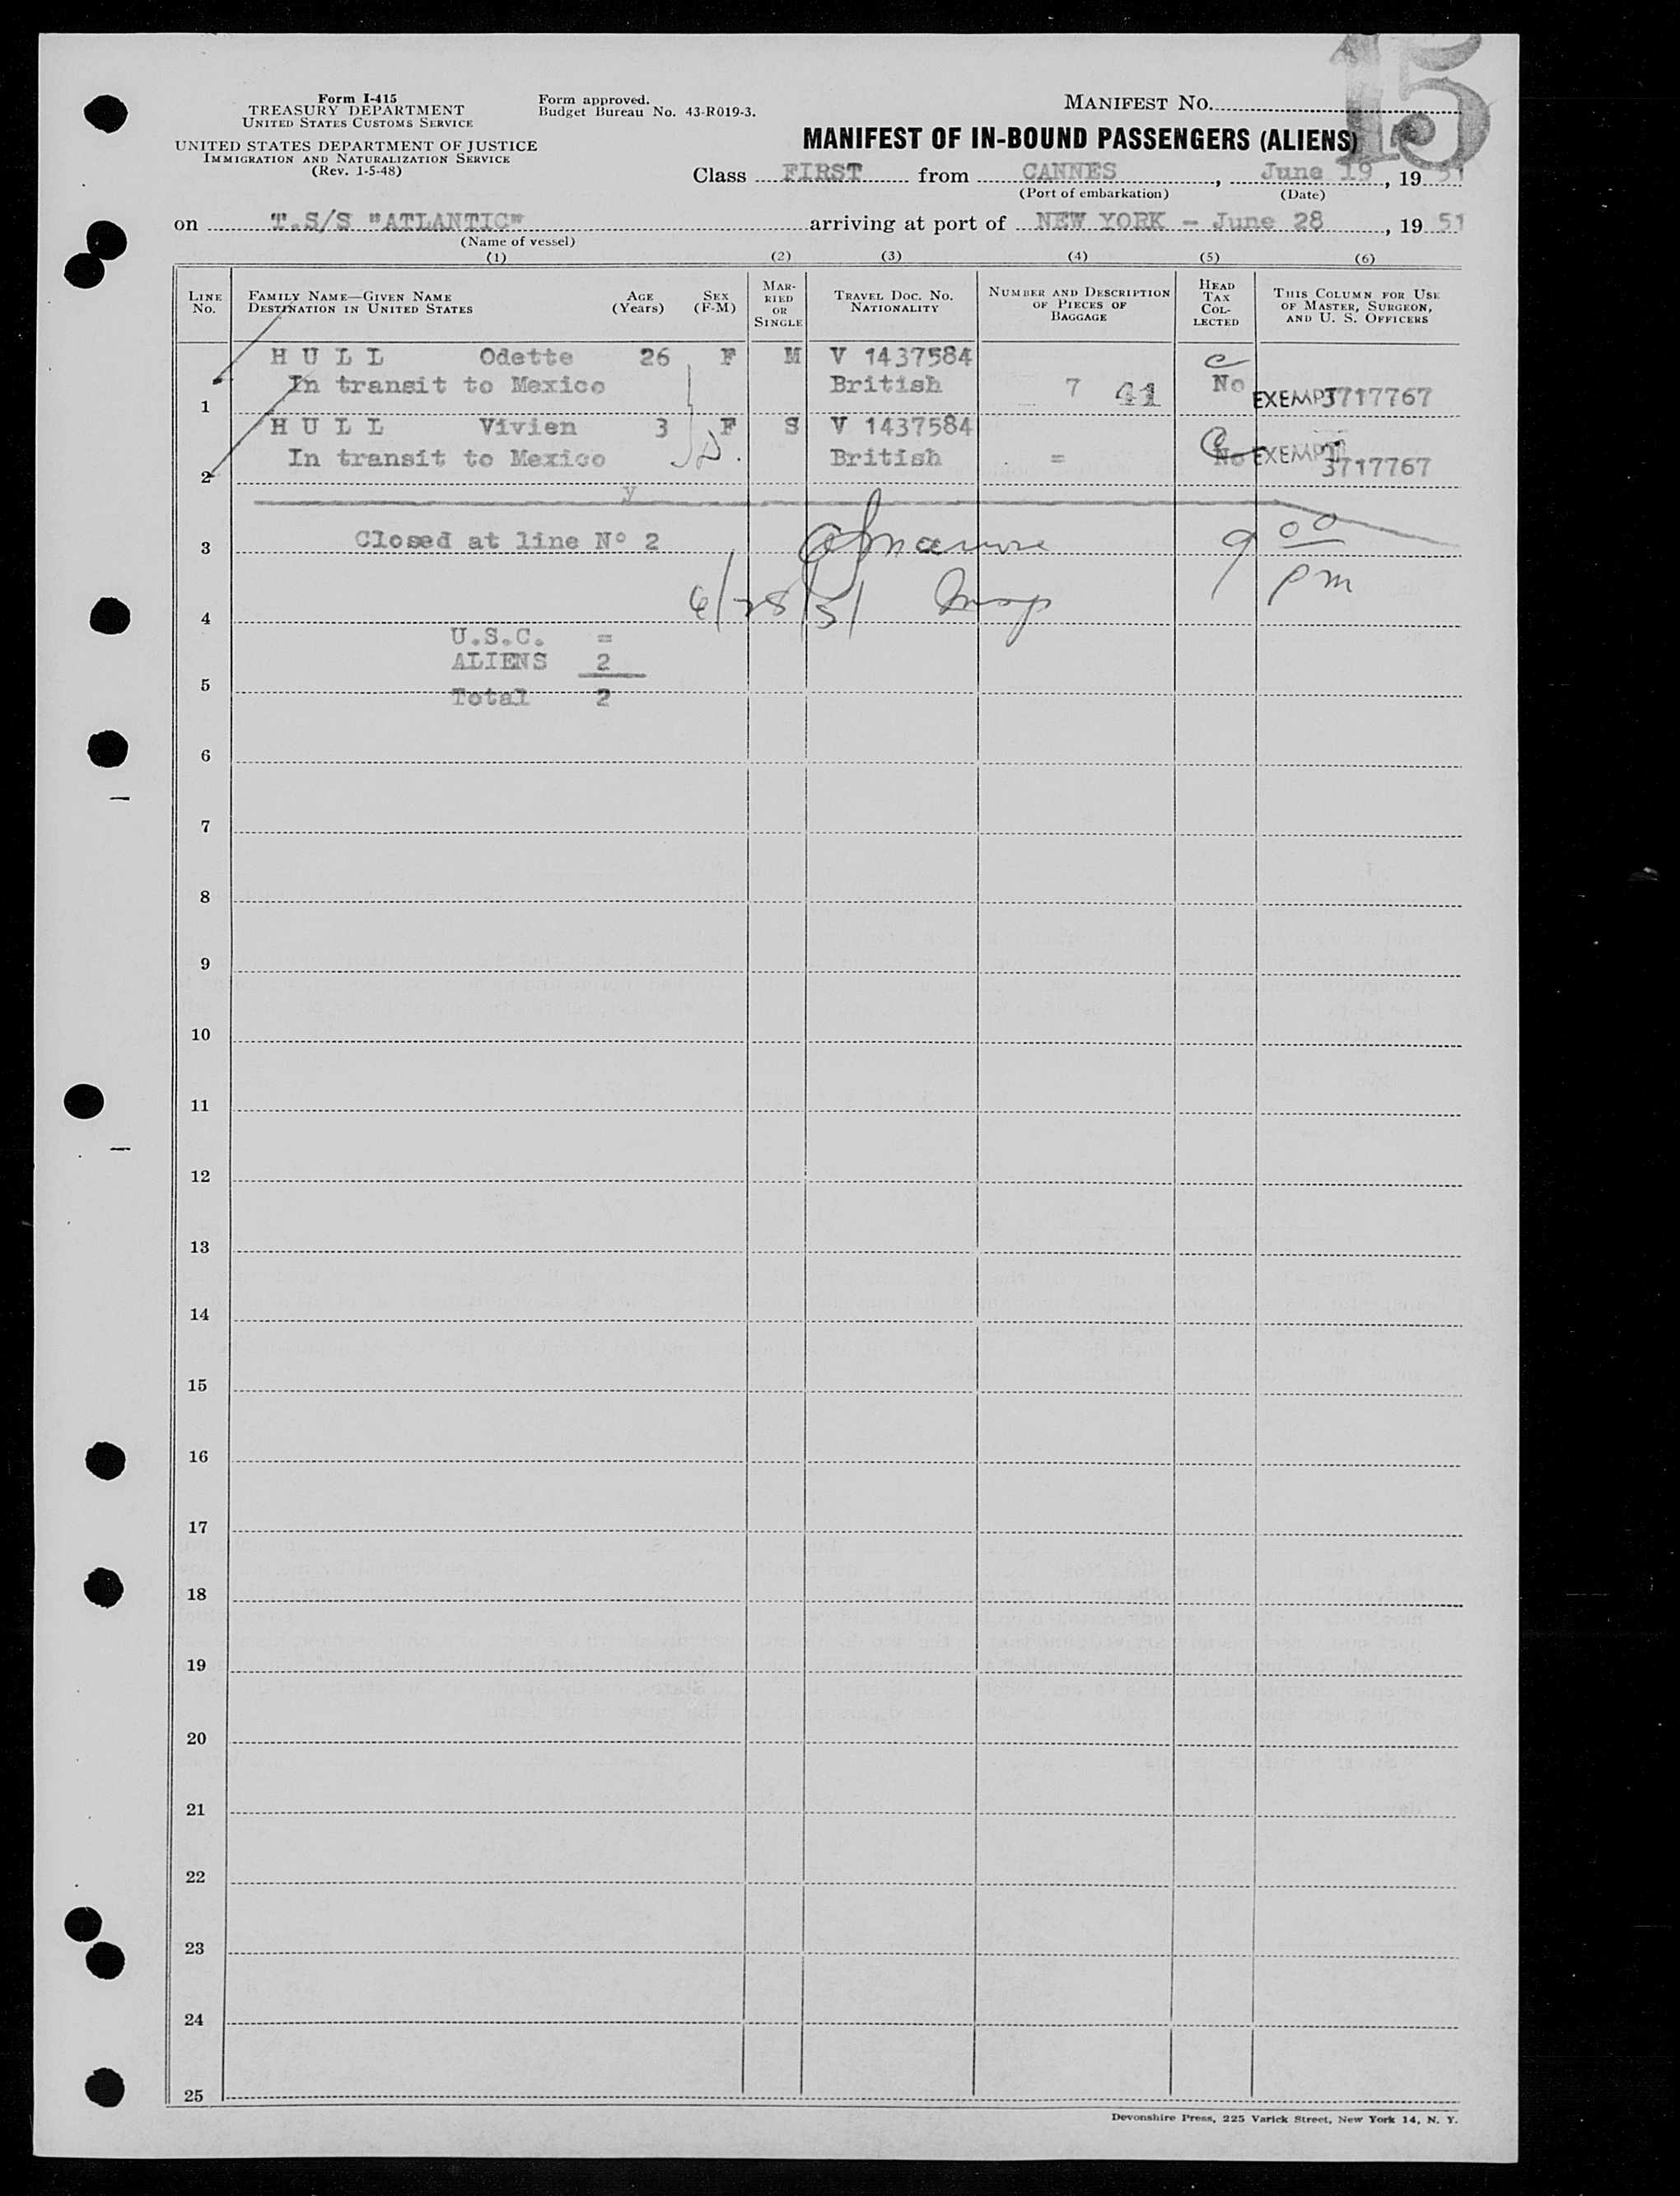 15
Form I-415
TREASURY DEPARTMENT
UNITED STATES CUSTOMS SERVICE
UNITED STATES DEPARTMENT OF JUSTICE
IMMIGRATION AND NATURALIZATION SERVICE
(Rev. 1-5-48)
Form approved.
Budget Bureau No. 43-R019-3.
MANIFEST NO.
MANIFEST OF IN-BOUND PASSENGERS (ALIENS)
Class FIRST from CANNES, June 19, 1951
(Port of embarkation) (Date)
on T.S/S "ATLANTIC" arriving at port of NEW YORK - June 28, 1951
(Name of vessel)
(1) (2) (3) (4) (5) (6)
LINE No. FAMILY NAME—GIVEN NAME DESTINATION IN UNITED STATES AGE (Years) SEX (F-M) MARRIED OR SINGLE TRAVEL DOC. NO. NATIONALITY NUMBER AND DESCRIPTION OF PIECES OF BAGGAGE HEAD TAX COLLECTED THIS COLUMN FOR USE OF MASTER, SURGEON, AND U. S. OFFICERS
H U L L Odette 26 F M V 1437584
1 In transit to Mexico British 7 41 No EXEMPT 3717767
H U L L Vivien 3 F S V 1437584
2 In transit to Mexico British = No EXEMPT 3717767
y
3 Closed at line Nº 2 9 00
4 6/28/51 Insp pm
U.S.C. =
ALIENS 2
5
Total 2
6
7
8
9
10
11
12
13
14
15
16
17
18
19
20
21
22
23
24
25
Devonshire Press, 225 Varick Street, New York 14, N. Y.